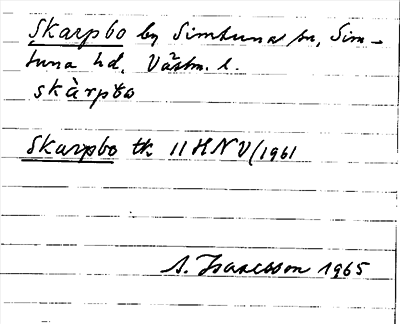 Skarpbo by Simtuna sn, Sim-
tuna hd, Västm. l.
skàrpbo
Skarpbo tk 11HNV/1961
A. Isaacsson 1965